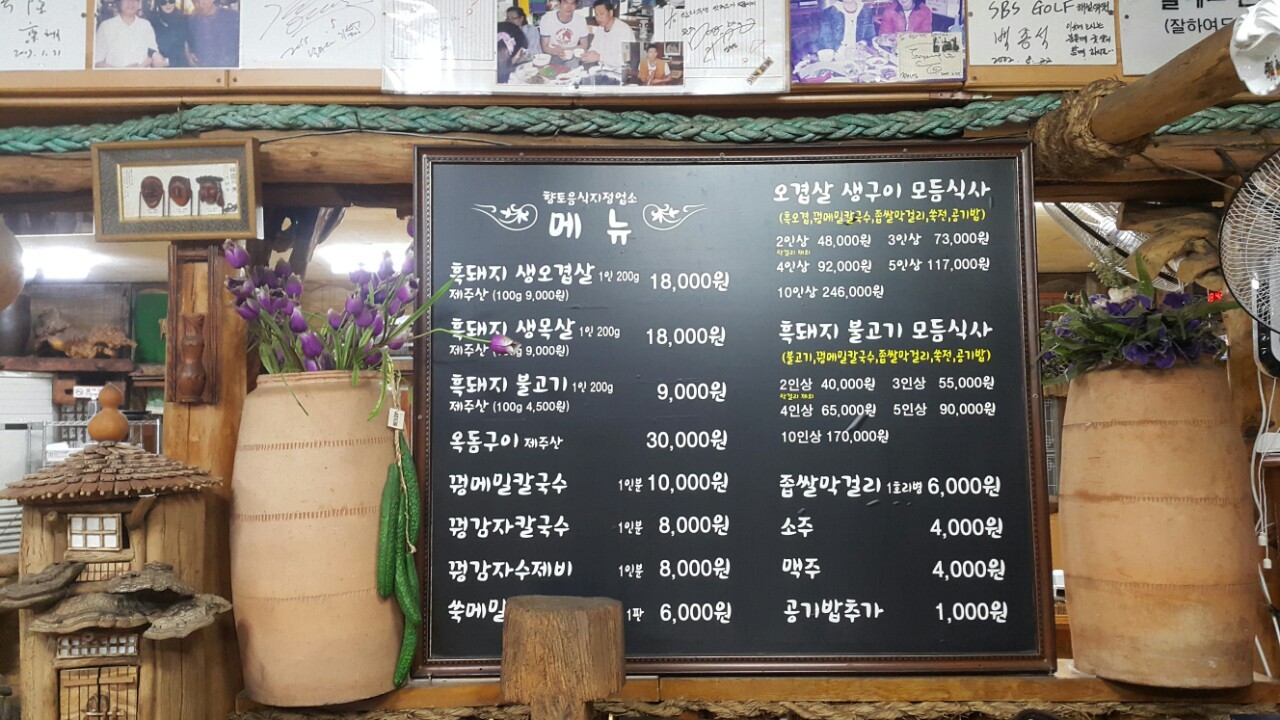 2017.1.21
2015
5
SBS GOLF
백종석
2002. 8. 22
(잘하여도
향토음식지정업소
메 뉴
흑돼지 생오겹살 1인 200g 18,000원
제주산 (100g 9,000원)
흑돼지 생목살 1인 200g 18,000원
제주산 9,000원)
흑돼지 불고기 1인 200g 9,000원
제주산 (100g 4,500원)
옥돔구이 제주산 30,000원
꿩메밀칼국수 1인분 10,000원
꿩감자칼국수 1인분 8,000원
꿩감자수제비 1인분 8,000원
쑥메밀 1판 6,000원
오겹살 생구이 모듬식사
(흑오겹,꿩메밀칼국수,좁쌀막걸리,쑥전,공기밥)
2인상 48,000원 3인상 73,000원
막걸리 제외
4인상 92,000원 5인상 117,000원
10인상 246,000원
흑돼지 불고기 모듬식사
(불고기,꿩메밀칼국수,좁쌀막걸리,쑥전,공기밥)
2인상 40,000원 3인상 55,000원
막걸리 제외
4인상 65,000원 5인상 90,000원
10인상 170,000원
좁쌀막걸리 1호리병 6,000원
소주 4,000원
맥주 4,000원
공기밥추가 1,000원